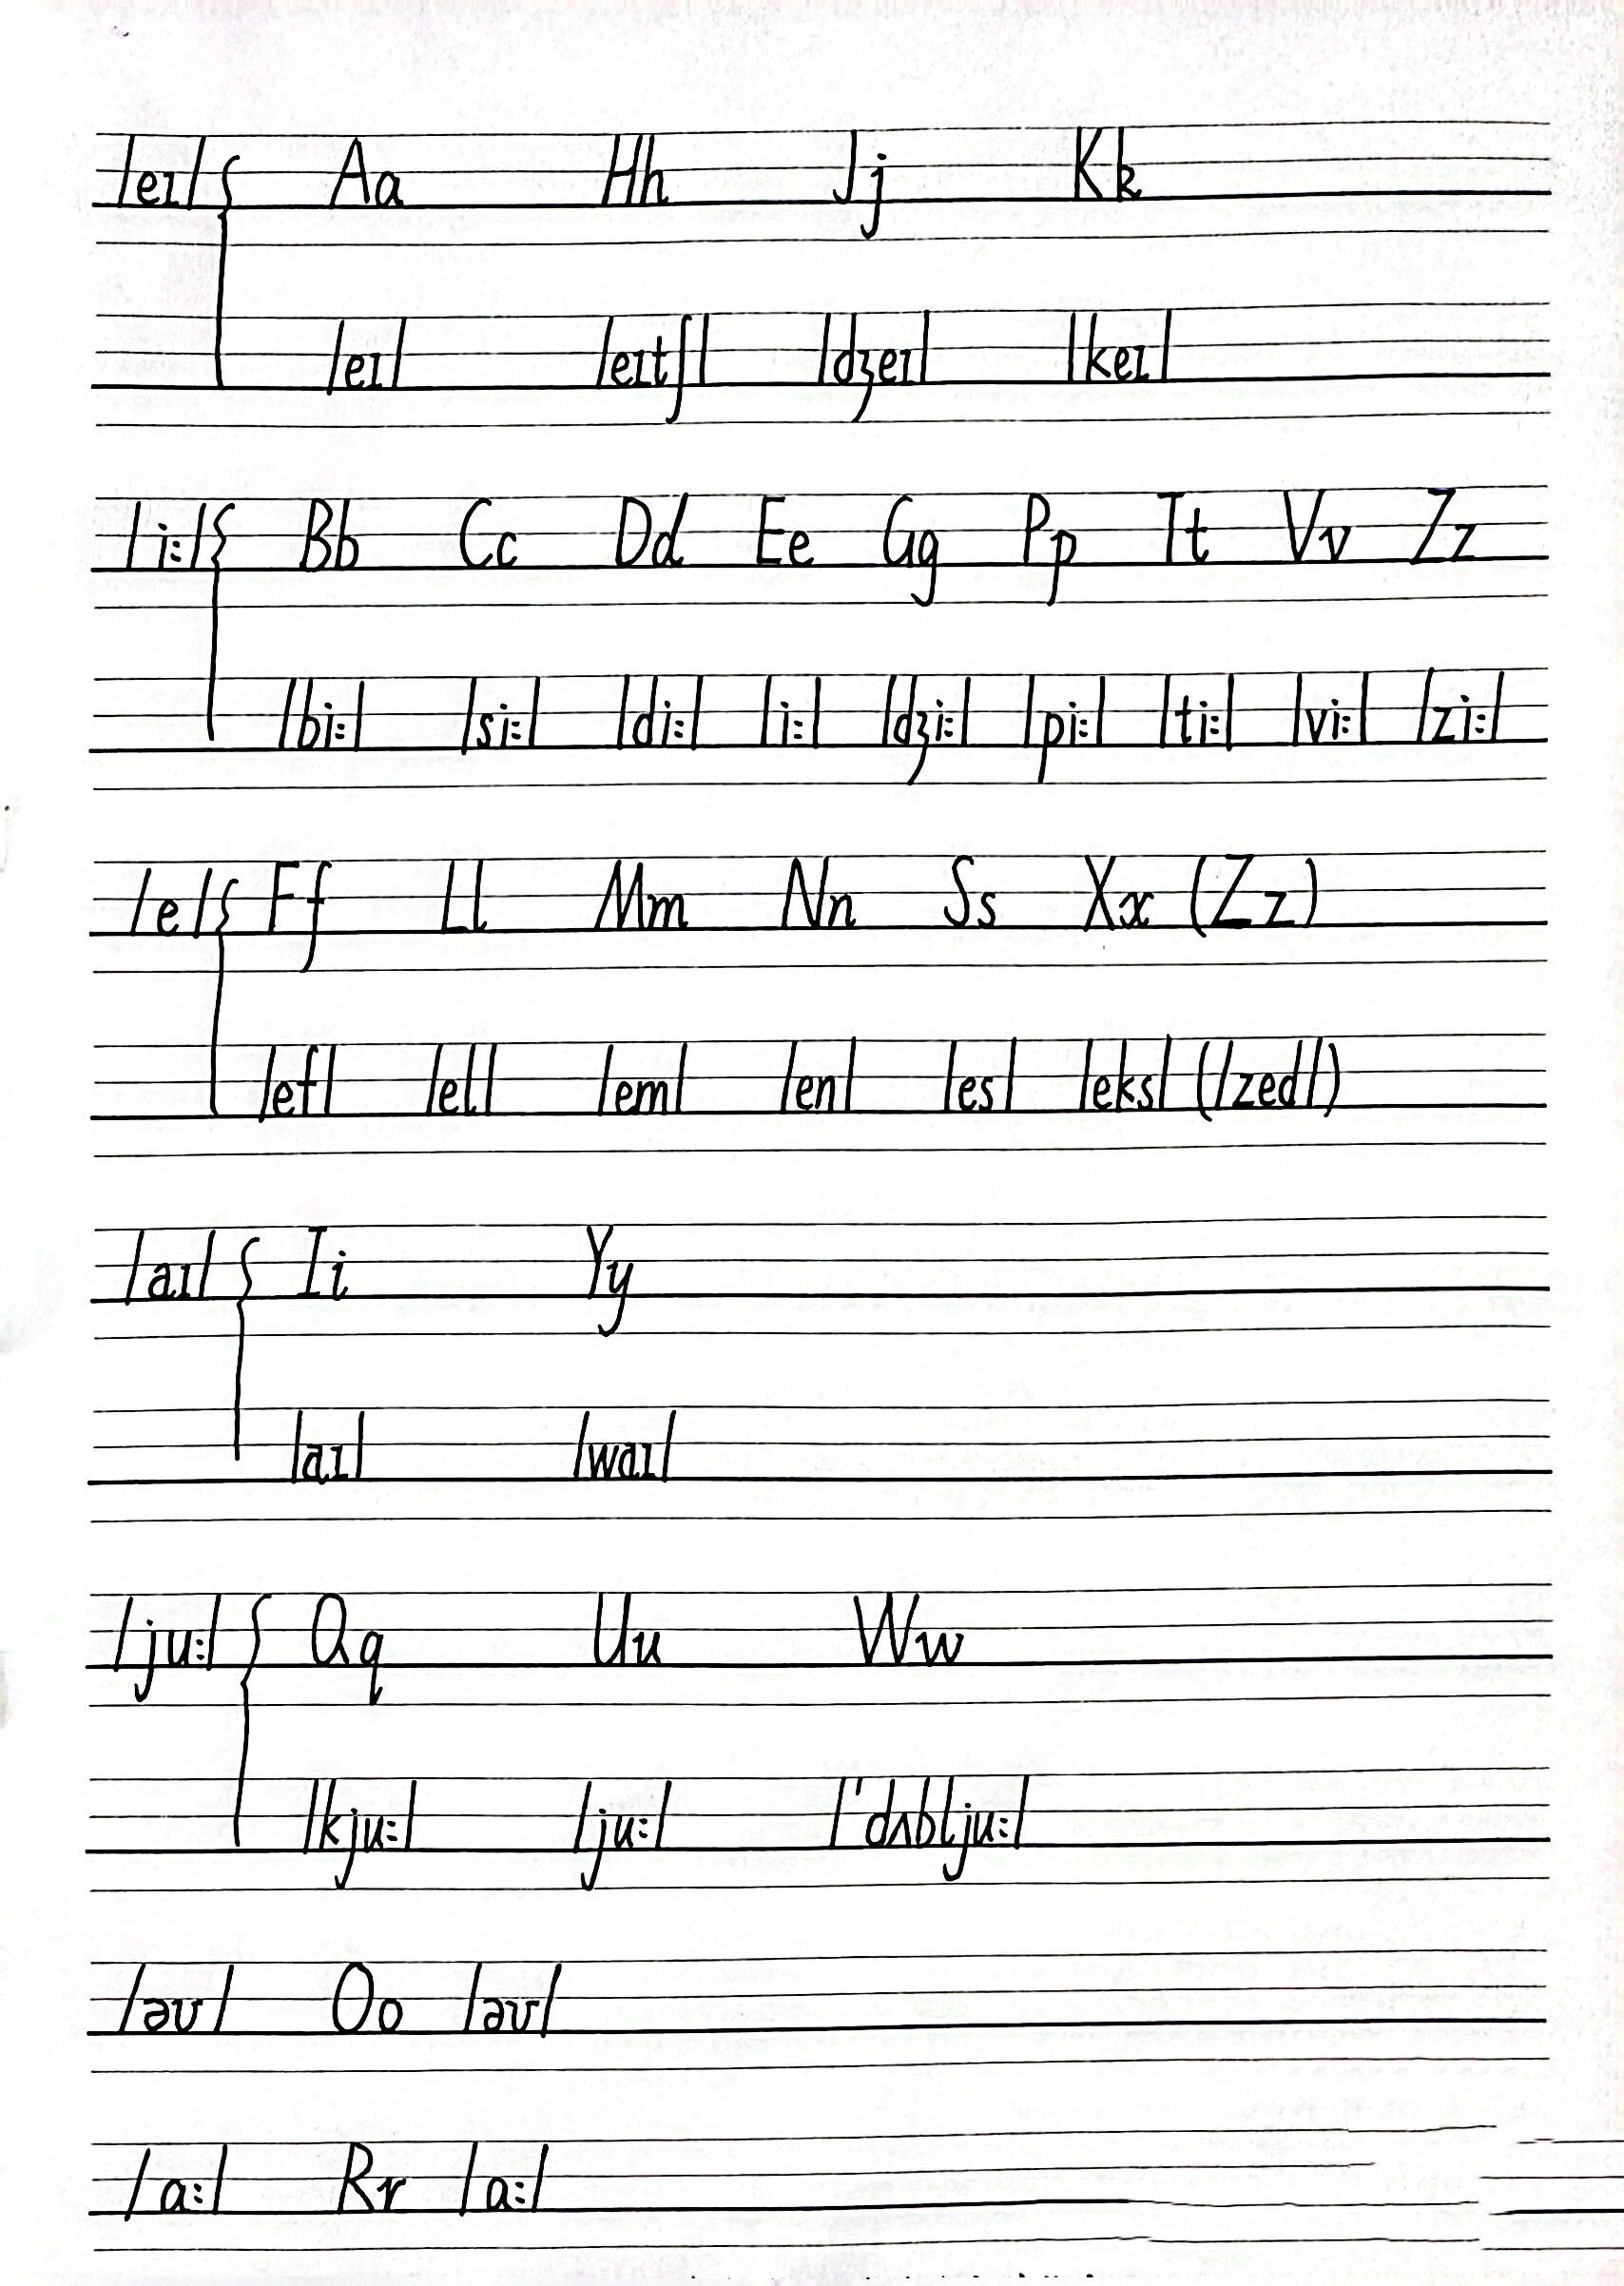 /eɪ/ { Aa Hh Jj Kk
/eɪ/ /eɪtʃ/ /dʒeɪ/ /keɪ/
/i:/ { Bb Cc Dd Ee Gg Pp Tt Vv Zz
/bi:/ /si:/ /di:/ /i:/ /dʒi:/ /pi:/ /ti:/ /vi:/ /zi:/
/e/ { Ff Ll Mm Nn Ss Xx (Zz)
/ef/ /el/ /em/ /en/ /es/ /eks/ (/zed/)
/aɪ/ { Ii Yy
/aɪ/ /waɪ/
/ju:/ { Qq Uu Ww
/kju:/ /ju:/ /'dʌblju:/
/əʊ/ Oo /əʊ/
/a:/ Rr /a:/